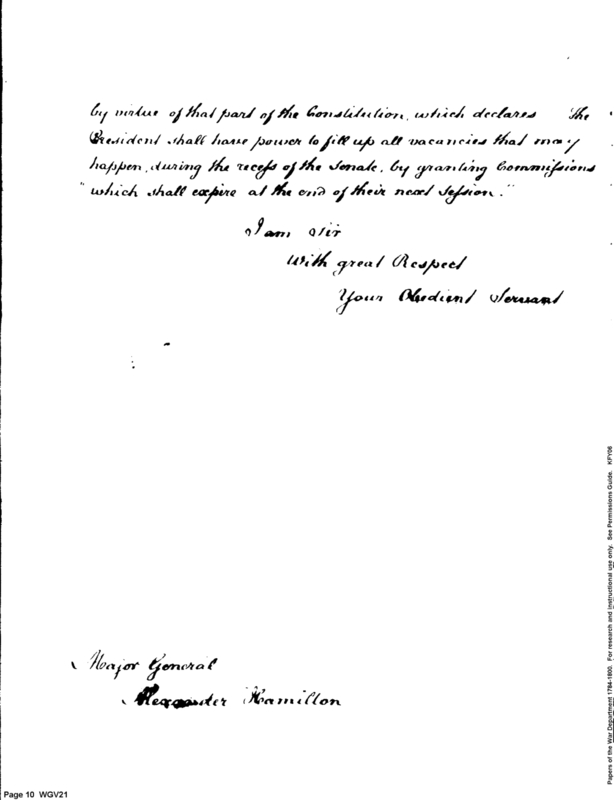 by virtue of that part of the Constitution, which declares The
President shall have power to fill up all vacancies that may
happen, during the recess of the Senate, by granting Commissions
"which shall expire at the end of their next Session."
I am Sir
With great Respect
Your Obedient Servant
Major General
Alexander Hamilton
Page 10 WGV21
Papers of the War Department 1784-1800. For research and instructional use only. See Permissions Guide. KFY06